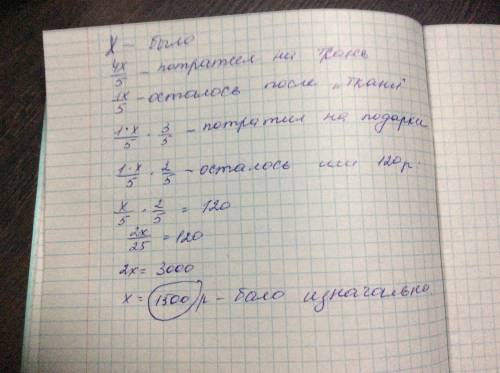 X - было
4x/5 - потратил на ткань
1x/5 - осталось после "ткани"
1·x/5 · 3/5 - потратил на подарки
1·x/5 · 2/5 - осталось или 120 р.
x/5 · 2/5 = 120
2x/25 = 120
2x = 3000
x = 1500 р - было изначально